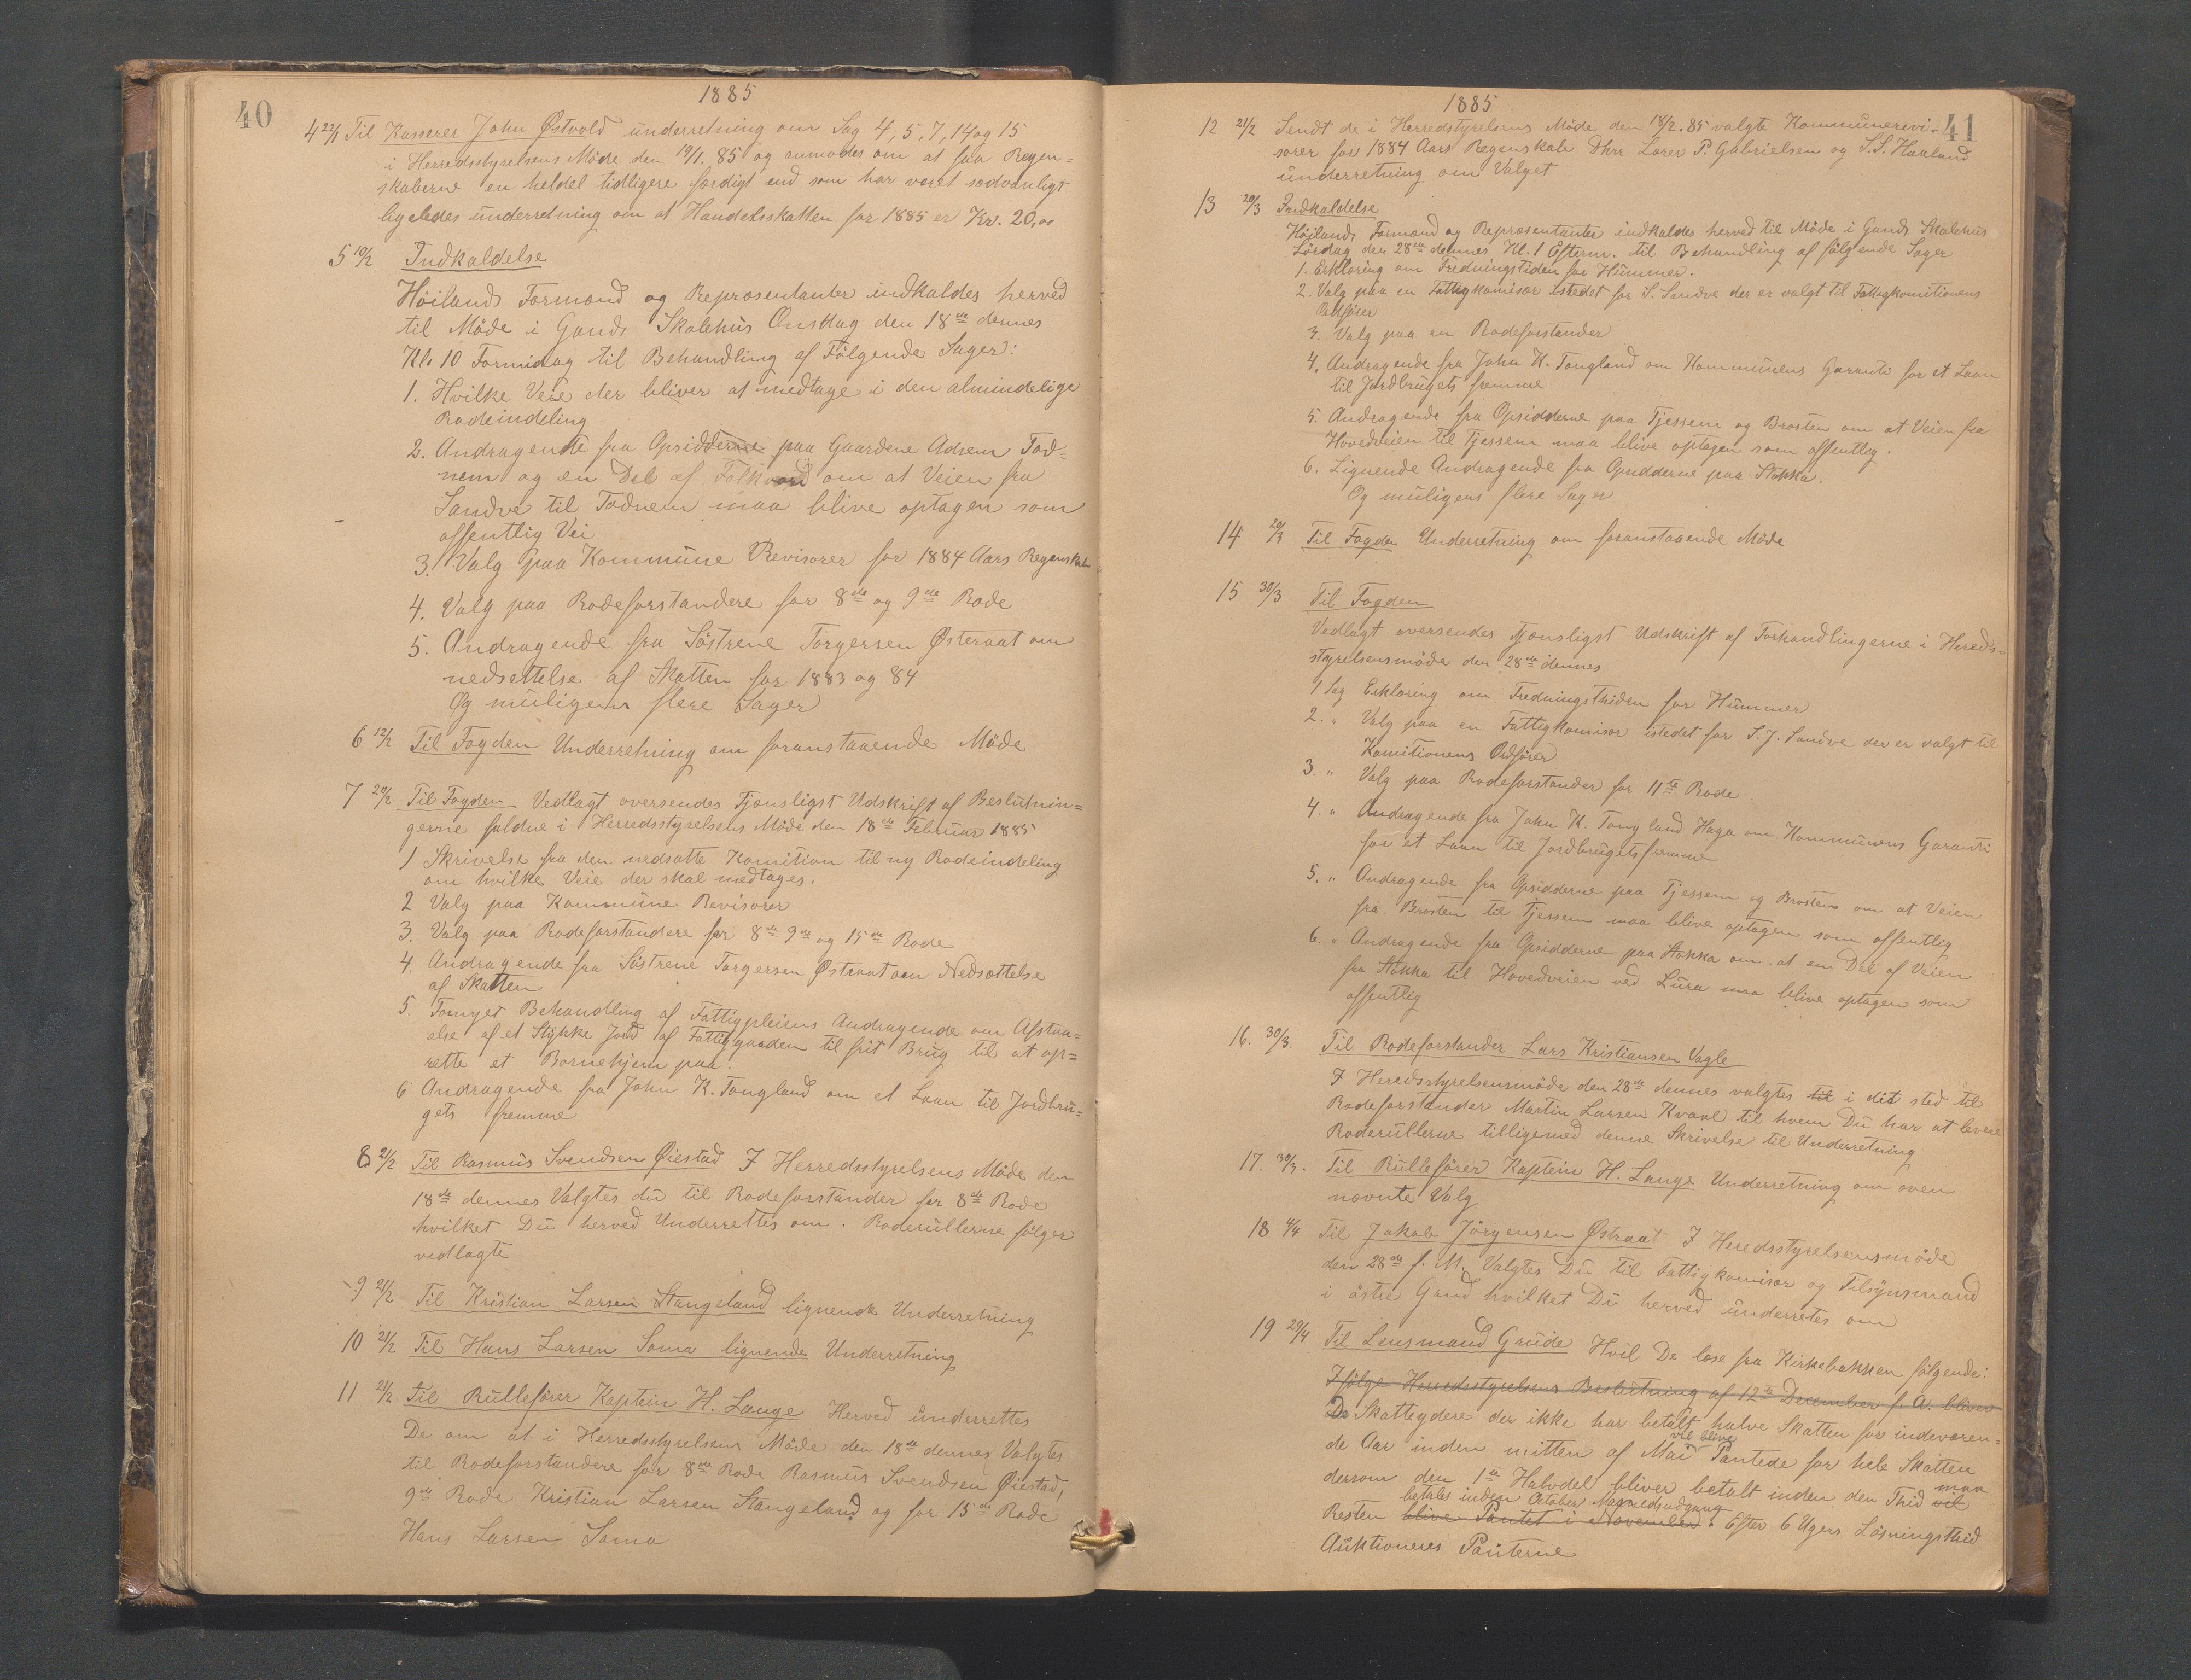 40
1885
4 22/1 Til Kasserer John Østvold underretning om Sag 4, 5, 7, 14 og 15
i Herredsstyrelsens Möde den 19/1. 85 og anmodes om at faa Regen=
skaberne en heldel tidligere færdigt end som har været sædvanligt
ligeledes underretning om at Handelsskatten for 1885 er Kr. 20,00
5 10/2 Indkaldelse
Höilands Formænd og Repræsentanter indkaldes herved
til Möde i Gands Skolehus Onsdag den 18de dennes
Kl. 10 Formidag til Behandling af Fölgende Sager:
1. Hvilke Veie der bliver at medtage i den almindelige
Rodeindeling
2. Andragende fra Opsidderne paa Gaardene Adsem Fod=
nem og en Del af Folkvord om at Veien fra
Sandve til Fodnem maa blive optagen som
offentlig Vei
3. Valg paa Kommune Revisorer for 1884 Aars Regnskab
4. Valg paa Rodeforstandere for 8de og 9de Rode
5. Andragende fra Söstrene Torgersen Østeraat om
nedsettelse af Skatten for 1883 og 84
Og muligens flere Sager
6 12/2 Til Fogden Underretning om foranstaaende Möde
7 20/2 Til Fogden Vedlagt oversendes Tjenesligst Udskrift af Beslutnin=
gerne faldne i Herredsstyrelsens Möde den 18de Februar 1885
1 Skrivelse fra den nedsatte Komition til ny Rodeindeling
om hvilke Veie der skal medtages.
2 Valg paa Kommune Revisorer
3. Valg paa Rodeforstandere for 8de 9de og 15de Rode
4. Andragende fra Söstrene Torgersen Østraat om Nedsættelse
af Skatten
5. Fornyet Behandling af Fattigpleiens Andragende om Afstaa=
else af et Stykke Jord af Fattiggaarden til frit Brug til at op=
rette et Bornehjem paa.
6 Andragende fra John K. Tongland om et Laan til Jordbru=
gets fremme
8 21/2 Til Rasmus Svendsen Øiestad I Herredsstyrelsens Möde den
18de dennes Valgtes du til Rodeforstander for 8de Rode
hvilket Du herved Underrettes om. Roderullerne fölger
vedlagte
9 21/2 Til Kristian Larsen Stangeland lignende Underretning
10 21/2 Til Hans Larsen Soma lignende Underretning
11 21/2 Til Rulleförer Kaptein H. Lange Herved underrettes
De om at i Herredsstyrelsens Möde den 18de dennes Valgtes
til Rodeforstandere for 8de Rode Rasmus Svendsen Øiestad,
9de Rode Kristian Larsen Stangeland og for 15de Rode
Hans Larsen Soma
1885
41
12 21/2 Sendt de i Herredstyrelsens Möde den 18/2. 85 valgte Kommunerevi-
sorer for 1884 Aars Regenskab Dhrr Lærer P. Gabrielsen og S.S. Haaland
underretning om Valget
13 20/3 Indkaldelse
Höilands Formænd og Repræsentanter indkaldes herved til Möde i Gands Skolehus
Lördag den 28de dennes Kl. 1 Efterm. til Behandling af fölgende Sager
1. Erklæring om Fredningstiden for Hummer.
2. Valg paa en Fattigkomisær istedet for S. Sandve der er valgt til Fattigkomitionens
Ordförer
3. Valg paa en Rodeforstander
4. Andragende fra John K. Tongland om Kommunens Garanti for et Laan
til Jordbrugets fremme
5. Andragende fra Opsidderne paa Tjessem og Brosten om at Veien fra
Hovedveien til Tjessem maa blive optagen som offentlig.
6. Lignende Andragende fra Opsidderne paa Stokka.
Og muligens flere Sager
14 20/3 Til Fogden Underretning om foranstaaende Möde
15 30/3 Til Fogden
Vedlagt oversendes tjensligst Udskrift af Forhandlingerne i Hereds=
styrelsensmöde den 28de dennes
1 Sag Erklæring om Fredningsthiden for Hummer
2. " Valg paa en Fattigkomisær istedet for S. J. Sandve der er valgt til
Komitionens Ordförer
3 " Valg paa Rodeforstander for 11te Rode
4. " Andragende fra John K. Tongland Haga om Kommunens Garanti
for et Laan til Jordbrugets fremme
5. " Andragende fra Opsidderne paa Tjessem og Brosten om at Veien
fra Brosten til Tjessem maa blive optagen som offentlig
6. " Andragende fra Opsidderne paa Stokka om at en Del af Veien
fra Stokka til Hovedveien ved Lura maa blive optagen som
offentlig
16. 30/3 Til Rodeforstander Lars Kristiansen Vagle
I Heredsstyrelsensmöde den 28de dennes valgtes til i dit sted til
Rodeforstander Martin Larsen Kvaal til hvem Du har at levere
Roderullerne tilligemed denne Skrivelse til Underretning
17. 30/3. Til Rulleförer Kaptein H. Lange Underretning om oven
nævnte Valg
18 4/4 Til Jakob Jörgensen Østraat I Heredsstyrelsensmöde
den 28de f. M. Valgtes Du til Fattigkomisær og Tilsynsmand
i östre Gand hvilket Du herved underretes om
19 29/4 Til Lensmand Grude Hvil De læse fra Kirkebakken fölgende:
Ifölge Herredsstyrelsens Beslutning af 12te December f. A. bliver
De Skatteydere der ikke har betalt halve Skatten for indeværen=
vil blive
de Aar inden mitten af Mai Pantede for hele Skatten
dersom den 1te Halvdel bliver betalt inden den Thid vil maa
betales inden October Maanedsudgang
Resten blive Pantet i November. Efter 6 Ugers Lösningsthid
Auktioneres Panterne